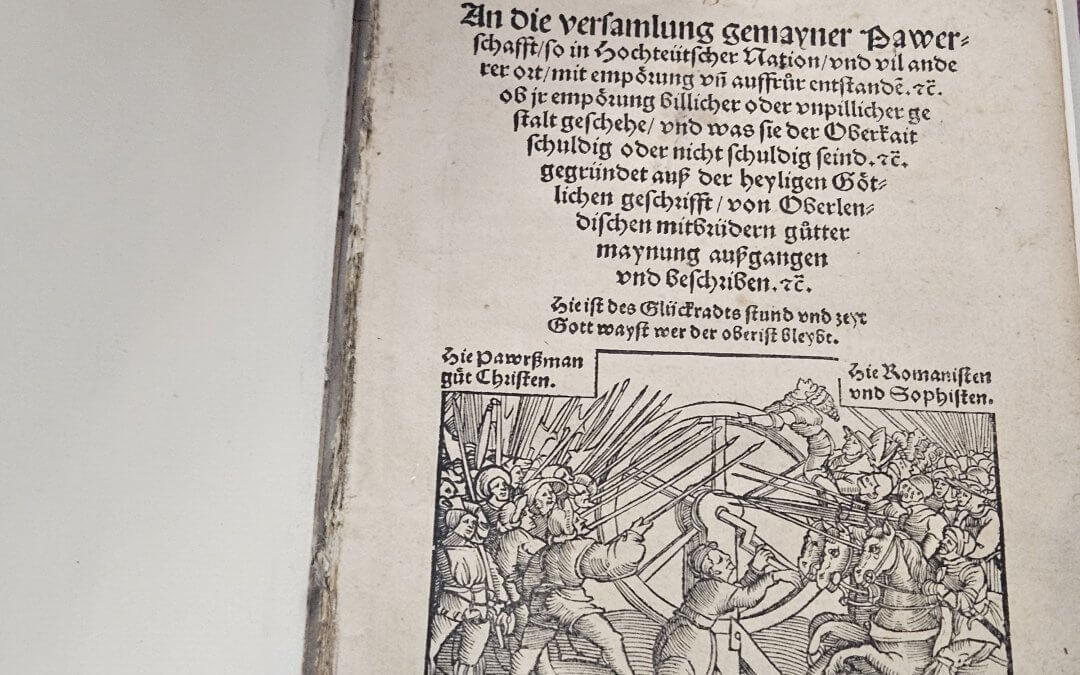 An die versamlung gemayner Pawer⸗
schafft/so in Hochteütscher Nation/vnd vil ande
rer ort/mit empörung vñ auffrůr entstandẽ.ꝛc̃.
ob jr empörung billicher oder vnpillicher ge
stalt geschehe/ vnd was sie der Oberkait
schuldig oder nicht schuldig seind.ꝛc̃.
gegründet auß der heyligen Göt⸗
lichen geschrifft/von Oberlen⸗
dischen mitbrüdern gůtter
maynung außgangen
vnd beschriben.ꝛc̃.
Hie ist des Glückradts stund vnd zeyt
Gott wayst wer der oberist bleybt.
Hie Pawrßman
gůt Christen.
Hie Romanisten
vnd Sophisten.